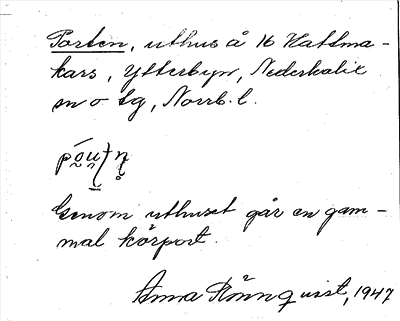 Porten, uthus å 16 Hattma-
kars, Ytterbyn, Nederkalix
sn o tg, Norrb. l.
Genom uthuset går en gam-
mal körport.
Anna Rönnquist, 1947